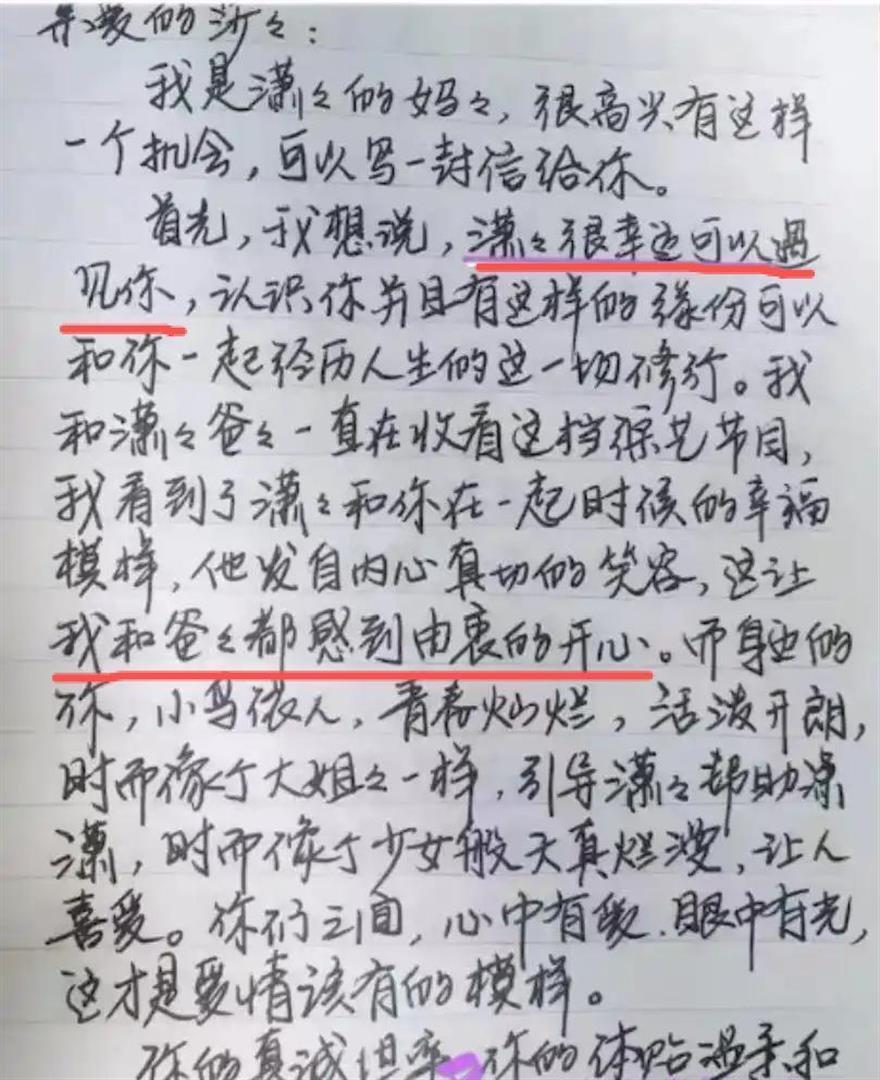 亲爱的沙々：
我是潇々的妈々，很高兴有这样
一个机会，可以写一封信给你。
首先，我想说，潇々很幸运可以遇
见你，认识你并且有这样的缘份可以
和你一起经历人生的这一切修行。我
和潇々爸々一直在收看这档综艺节目，
我看到了潇々和你在一起时候的幸福
模样，他发自内心真切的笑容，这让
我和爸々都感到由衷的开心。而身边的
你，小鸟依人，青春灿烂，活泼开朗，
时而像个大姐々一样，引导潇々帮助潇
潇，时而像个少女般天真烂漫，让人
喜爱。你们之间，心中有爱，眼中有光，
这才是爱情该有的模样。
你的真诚坦率，你的体贴温柔和